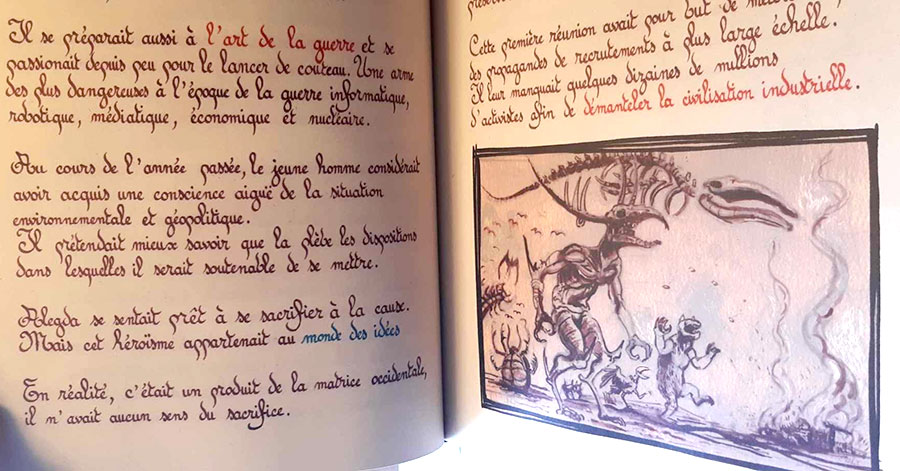 Il se préparait aussi à l'art de la guerre et se
passionait depuis peu pour le lancer de couteau. Une arme
des plus dangereuses à l'époque de la guerre informatique,
robotique, médiatique, économique et nucléaire.
Au cours de l'année passée, le jeune homme considérait
avoir acquis une conscience aiguë de la situation
environnementale et géopolitique.
Il prétendait mieux savoir que la plèbe les dispositions
dans lesquelles il serait soutenable de se mettre.
Alegda se sentait prêt à se sacrifier à la cause.
Mais cet héroïsme appartenait au monde des idées
En réalité, c'était un produit de la matrice occidentale,
il n'avait aucun sens du sacrifice.
Cette première réunion avait pour but de
des propagandes de recrutements à plus large échelle.
Il leur manquait quelques dizaines de millions
d'activistes afin de démanteler la civilisation industrielle.